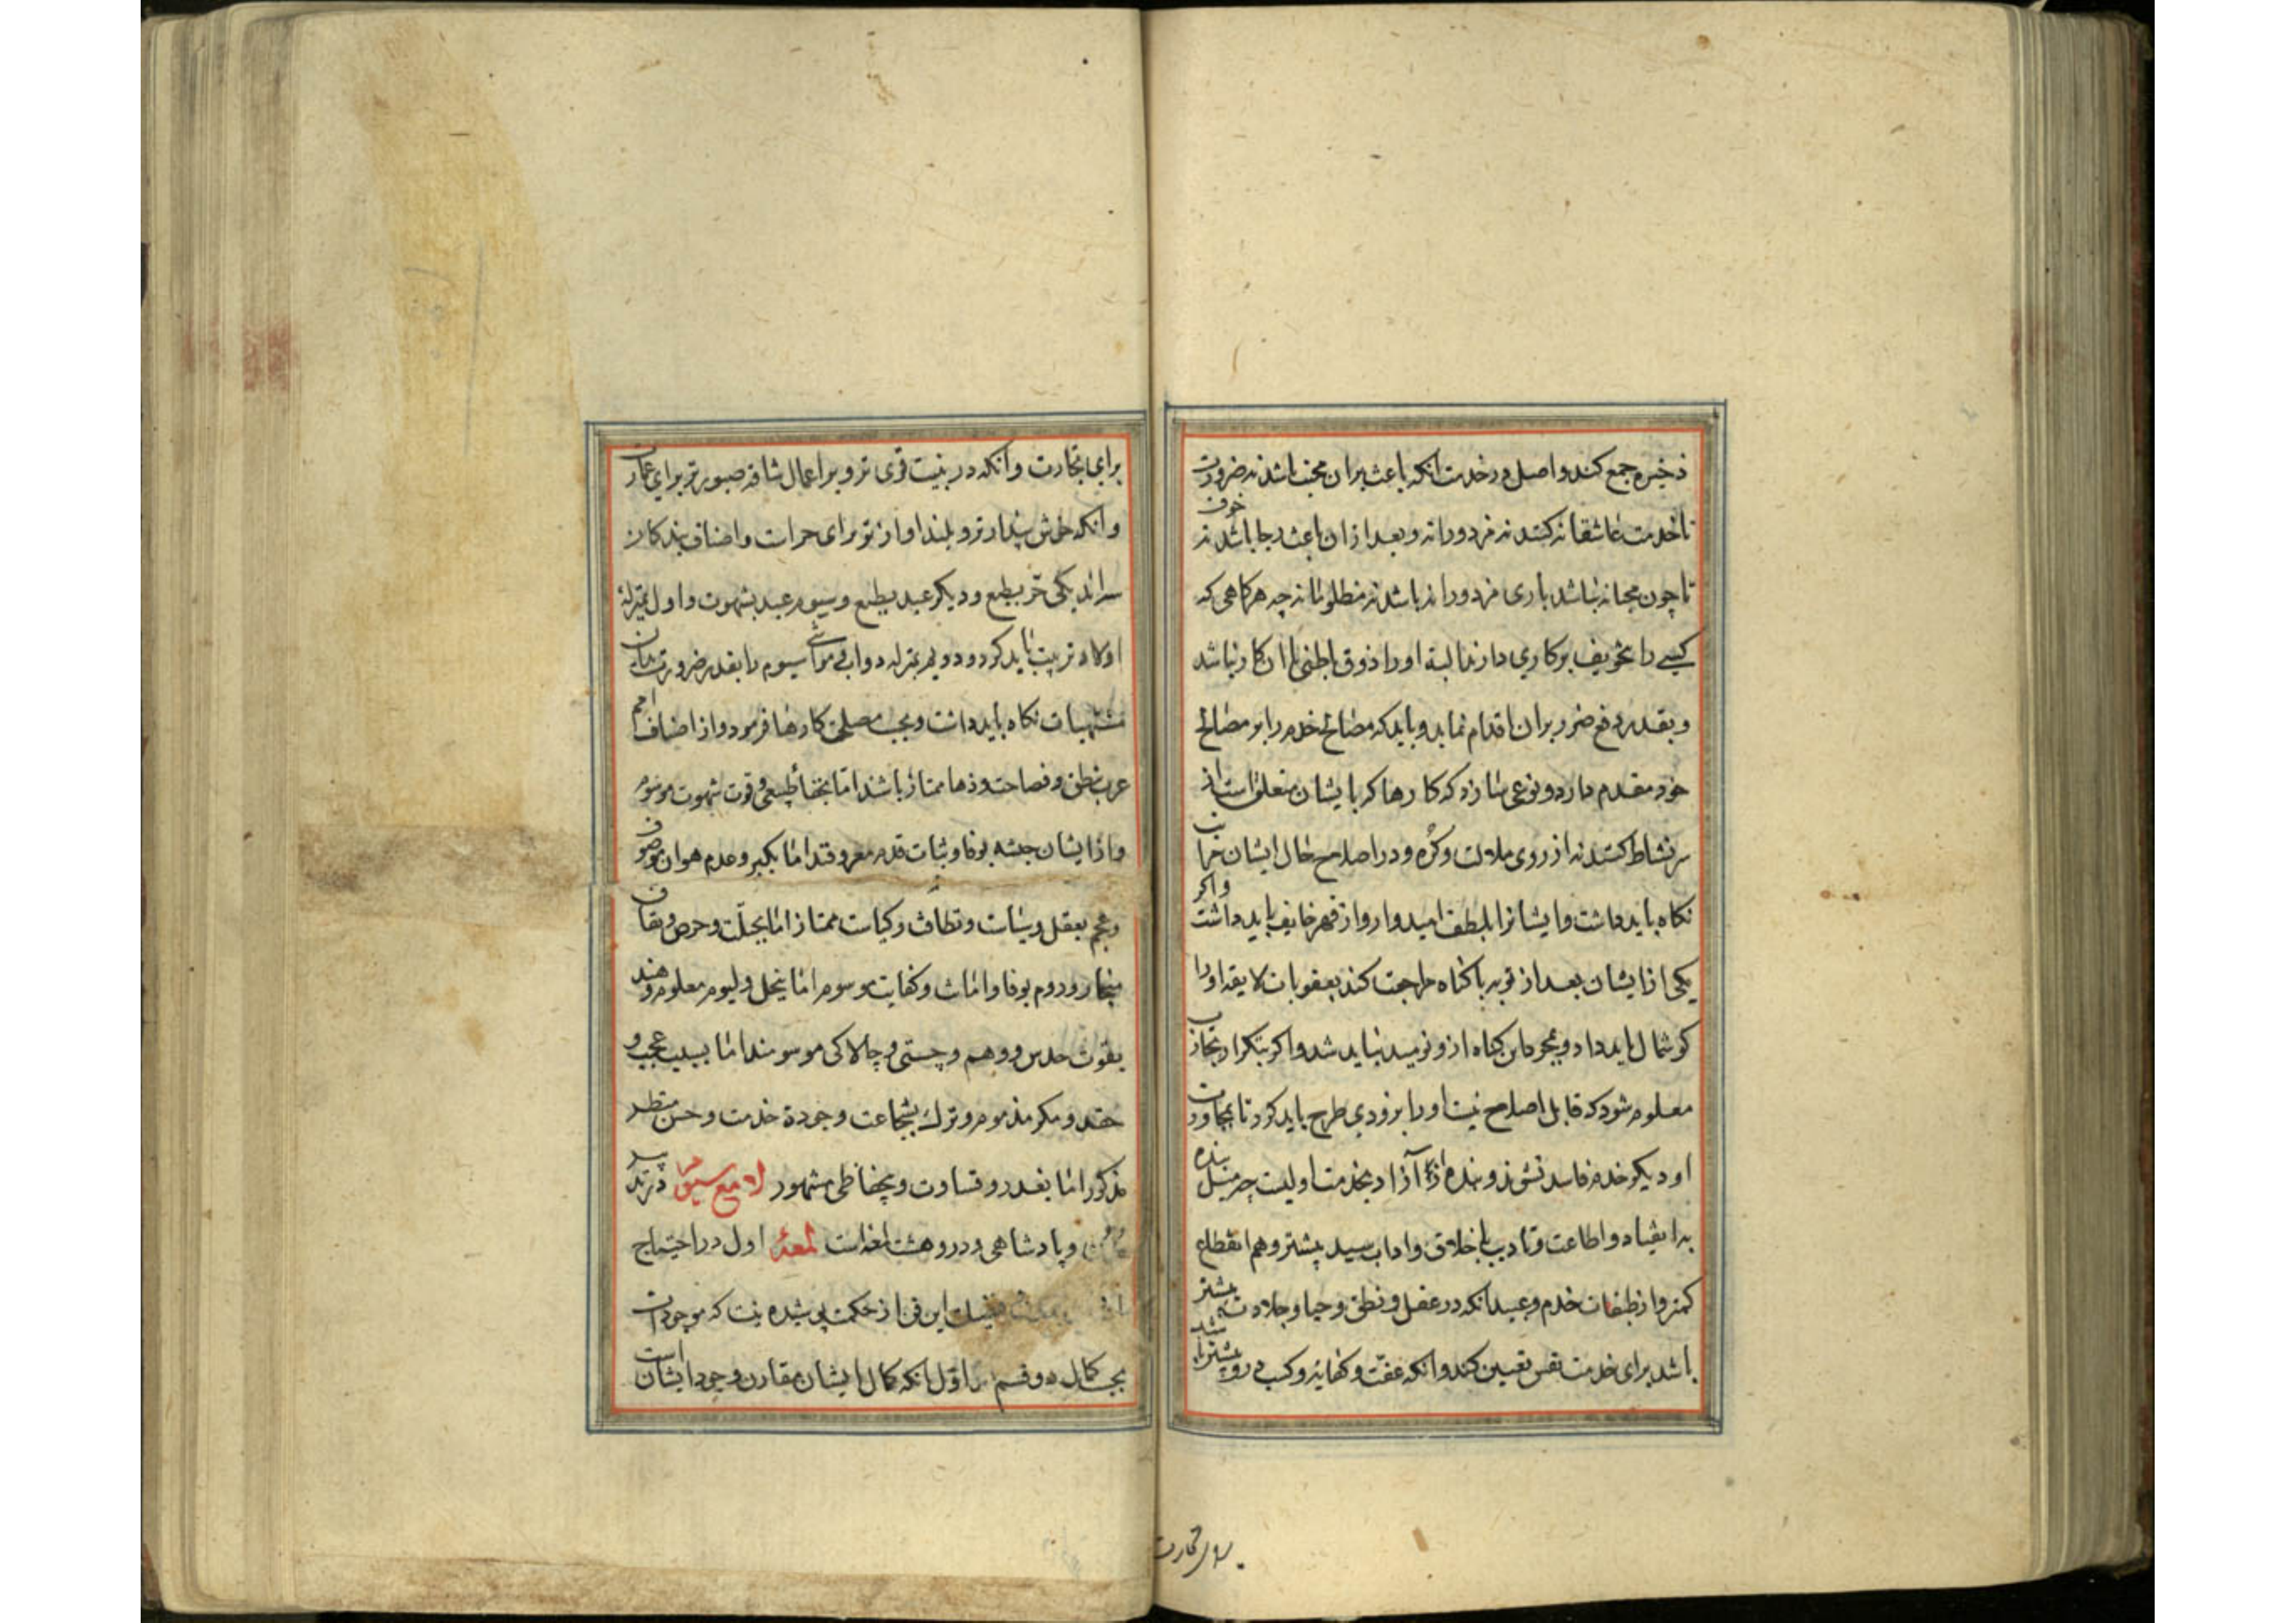 ذخیره جمع کند واصل در خدمت انکه باعث بران محبت باشد نه ضرورت
تا خدمت عاشقانه کنند نه مزدورانه و بعد ازان باعث رجا باشد نه خوف
تا چون محبانه نباشد باری مزدورانه باشد نه مظلومانه چه هرکاهی که
کسی را بتخویف برکاری دارند البته اورا ذوق باطنی با ان کار نباشد
و بقدر دفع ضرر بران اقدام نماید و باید که مصالح خدم را بر مصالح
خود مقدم دارد و نوعی سازد که کارها که بایشان متعلق است از
سر نشاط کنند نه از روی ملالت وکره و در اصلاح حال ایشان مراتب
نکاه باید داشت وایشانرا بلطف امیدوار و از قهر خایف باید داشت واکر
یکی از ایشان بعد از توبه با کناه مراجعت کند بعقوبات لایقه اورا
کوشمال باید داد و بمجرد این کناه ازو نومید نباید شد واکر بتکرار تجارب
معلوم شود که قابل اصلاح نیست اورا بزودی طرح باید کرد تا بمجاورت
او دیکر خدم فاسد نشوند و بنده از آزاد بخدمت اولیست چه میل بنده
به انقیاد و اطاعت و تادیب باخلاق واداب سید بیشتر و هم انقطاع
کمتر و از طبقات خدم و عبید انکه در عقل و نطق و حیا و جلادت بیشتر
باشد برای خدمت نفس تعیین کند وانکه عفت و کفایة و کسب درو بیشتر باشد
برای تجارت
برای تجارت وانکه در بنیت قوی تر و بر اعمال شاقه صبورتر برای عمارت
وانکه خوش بیدارتر و بلند اوازتر برای حراست واصناف بندکان
سه اند یکی حر بطبع و دیکر عبد بطبع و سیوم عبد بشهوت واول بمنزلهٔ
اولاد تربیت باید کرد و دویم بمنزله دواب و مواشی سیوم را بقدر ضرورت بان
مشتهیات نکاه باید داشت و بحسب مصلحت کارها فرمود و از اصناف امم
عرب بنطق و فصاحت و دها ممتاز باشند اما بجفا طبعی و قوت شهوت موسوم
و از ایشان حبشه بوفا و ثبات قدم معروفند اما بکبر و عدم هوان موصوف
و عجم بعقل و سیاست و نظافت و کیاست ممتاز اما بحیلت و حرص و نفاق
منجار و روم بوفا وامانت و کفایت موسوم اما ببخل و لیوم معلوم و هند
بقوت حدس و وهم و چستی و چالاکی موسومند اما بسبب عجب و
حقد و مکر مذموم و ترک بشجاعت و جودة خدمت و حسن منظر
مذکور اما بغدر و قساوت و بحفاظی مشهور لامع سیوم در تدبیر
مدن و پادشاهی و درو هشت لمعه است لمعهٔ اول در احتیاج
فضیلت این فن از حکمت پوشیده نیست که موجودات
بحسب کمال دو قسم اول انکه کمال ایشان مقارن وجود ایشان است